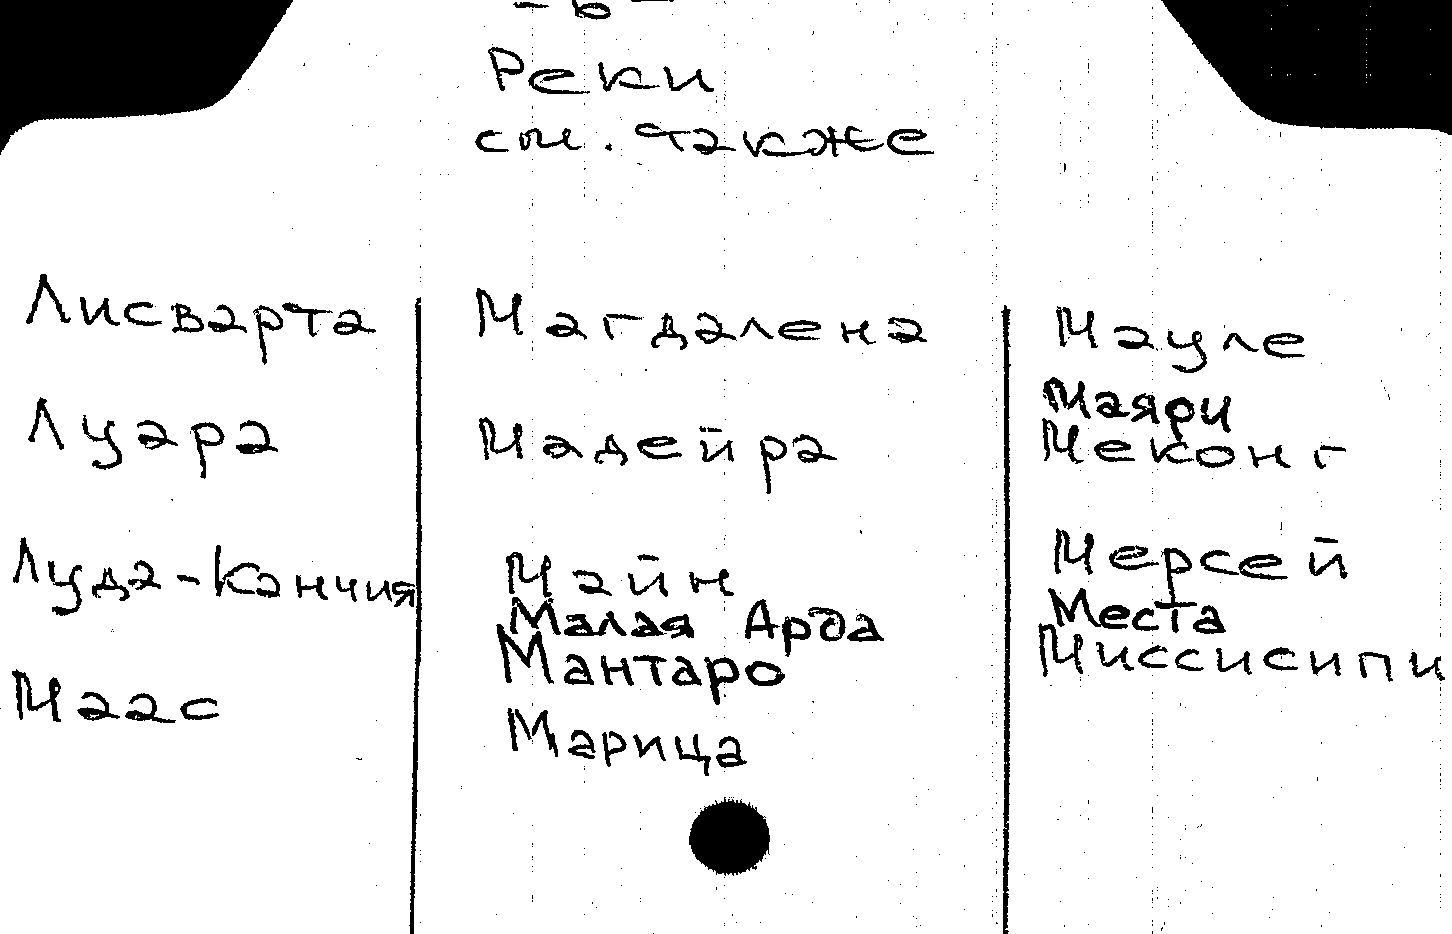 - 6 -
Реки
см. также
Лисварта
Луара
Луда-Канчия
Маас
Магдалена
Мадейра
Майн
Малая Арда
Мантаро
Марица
Мауле
Маяри
Меконг
Мерсей
Места
Миссисипи